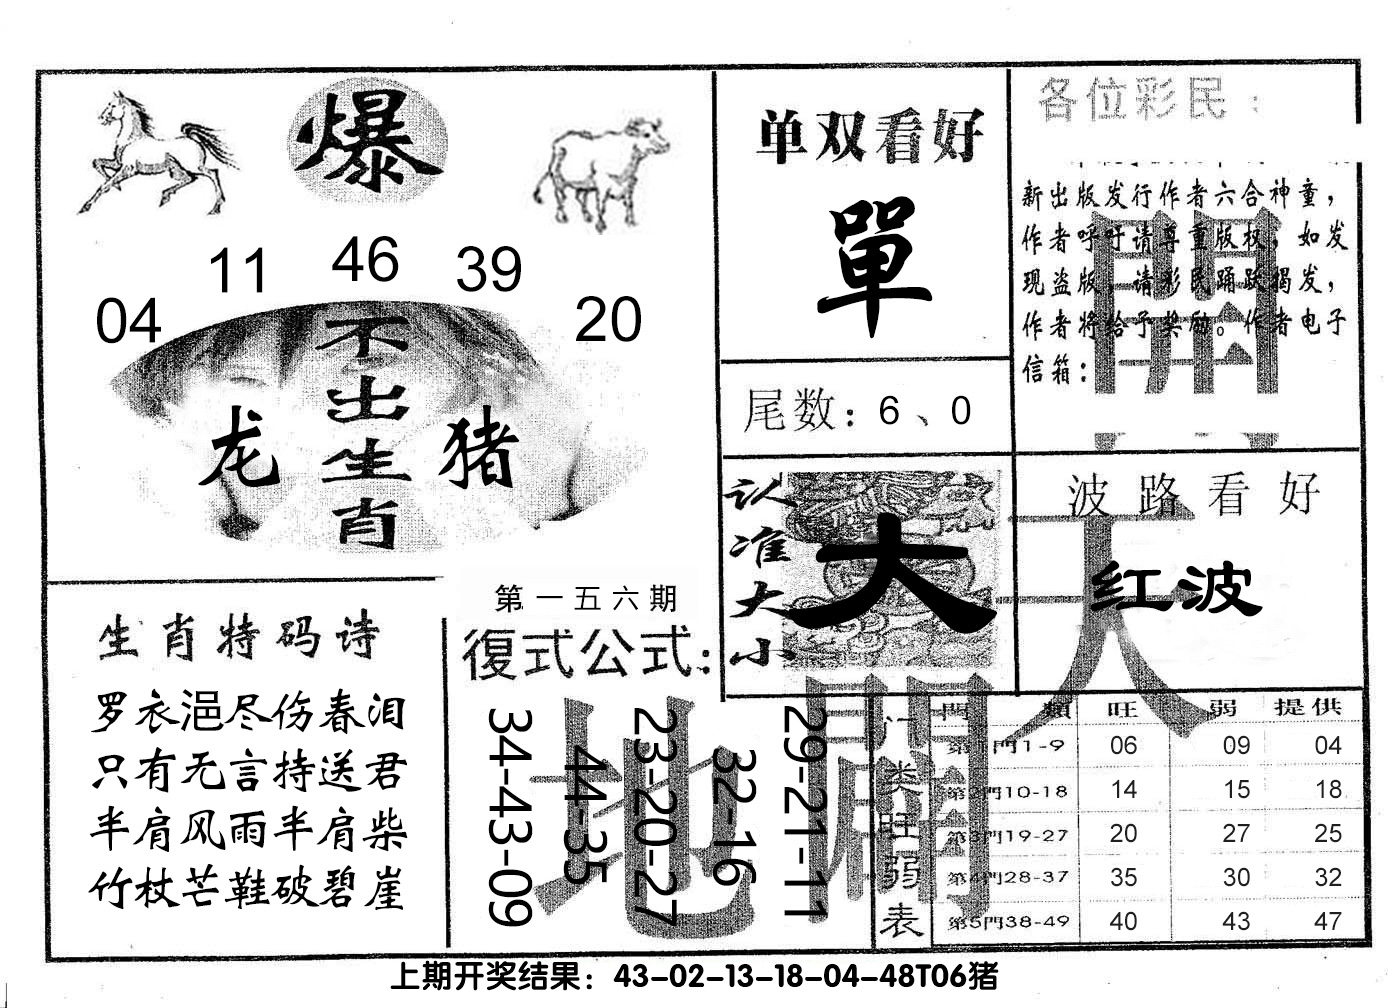 爆
04
11
46
39
20
不出生肖
龙
猪
单双看好
單
尾数：6、0
各位彩民：
新出版发行作者六合神童，
作者呼吁请尊重版权，如发
现盗版，请彩民踊跃揭发，
作者将给予奖励。作者电子
信箱：
認准大小
大
波路看好
红波
天
開
地
開
生肖特码诗
罗衣浥尽伤春泪
只有无言持送君
半肩风雨半肩柴
竹杖芒鞋破碧崖
第一五六期
復式公式：
34-43-09
44-35
23-20-27
32-16
29-21-11
门类旺弱表
門 類 旺 弱 提供
第1門1-9 06 09 04
第2門10-18 14 15 18
第3門19-27 20 27 25
第4門28-37 35 30 32
第5門38-49 40 43 47
上期开奖结果：43-02-13-18-04-48T06猪